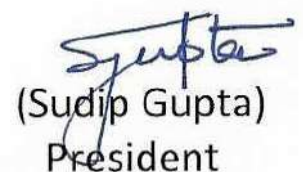 Sgupta
(Sudip Gupta)
President